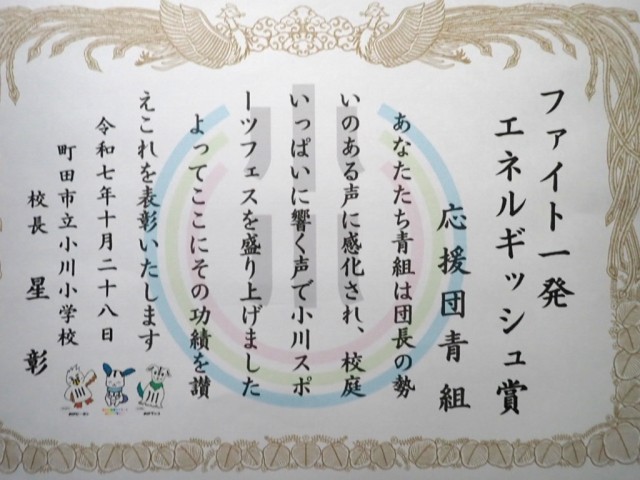 ファイト一発
エネルギッシュ賞
応援団青組
あなたたち青組は団長の勢
いのある声に感化され、校庭
いっぱいに響く声で小川スポ
ーツフェスを盛り上げました
よってここにその功績を讃
えこれを表彰いたします
令和七年十月二十八日
町田市立小川小学校
校長 星 彰